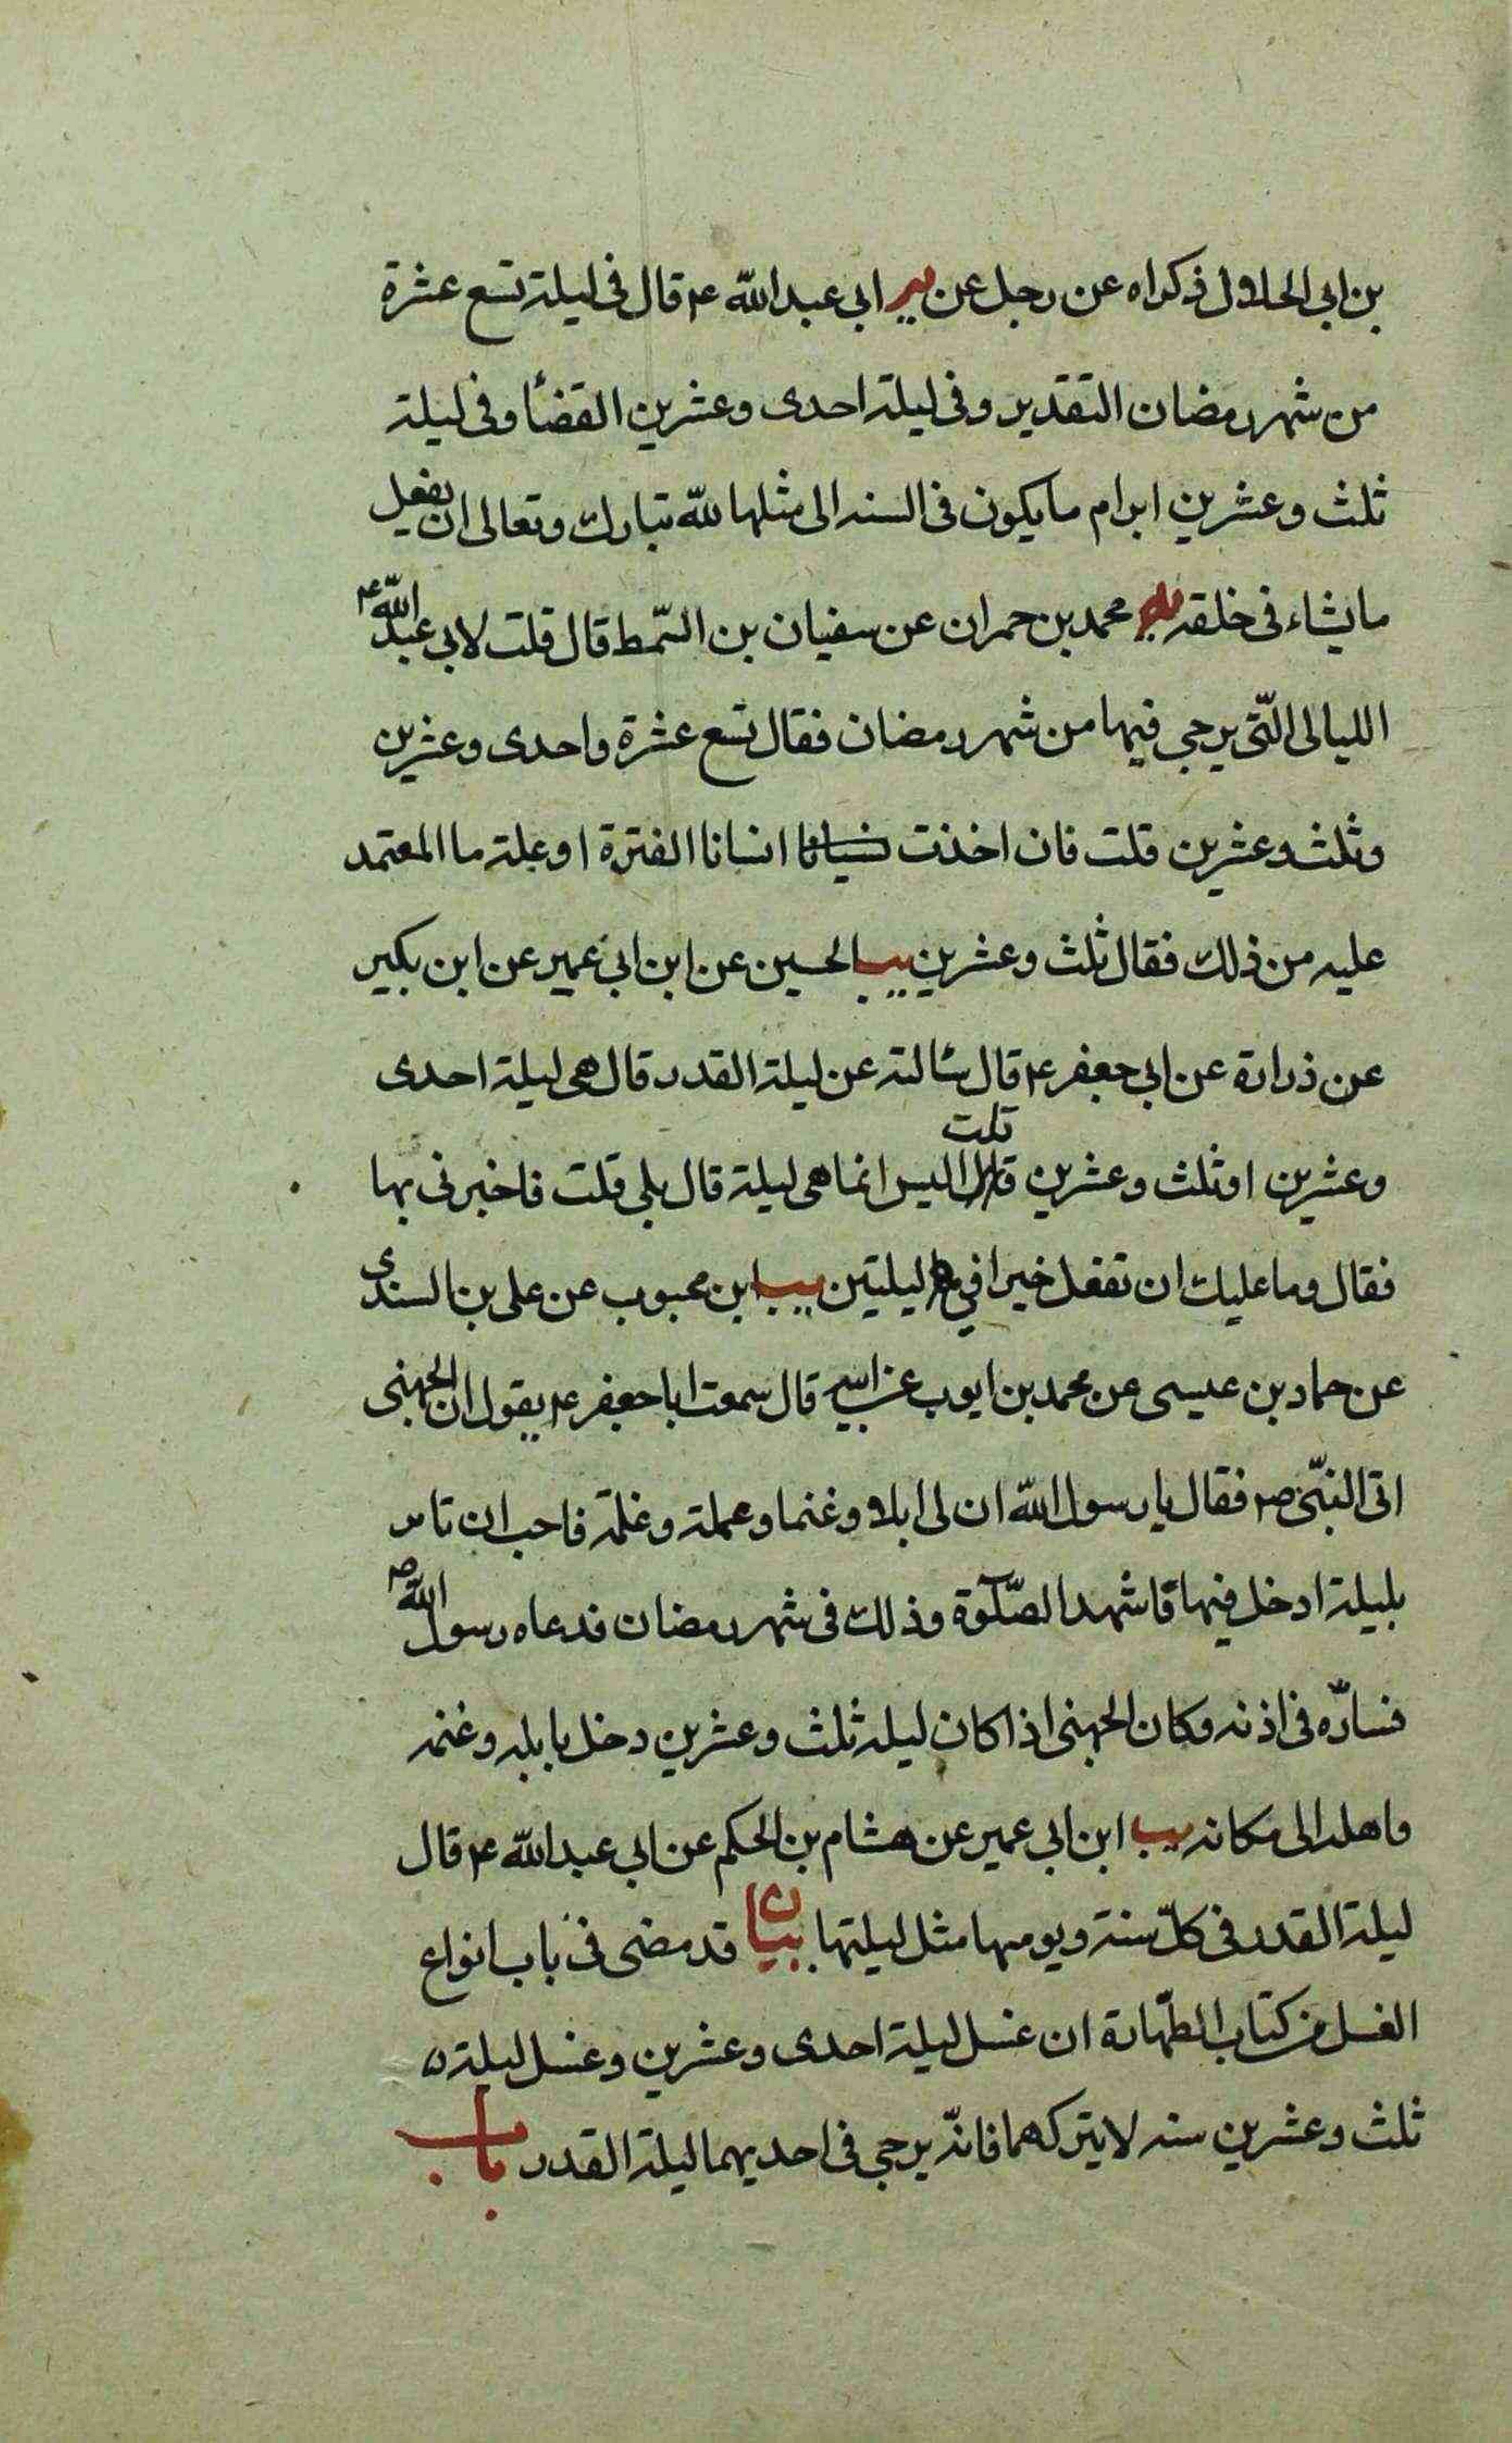 بن ابی الحلاول ذکراه عن رجل عن یر ابی عبدالله ع قال فی لیلة تسع عشرة
من شهر رمضان التقدیر وفی لیلة احدی وعشرین القضاء وفی لیلة
ثلث وعشرین ابرام ما یکون فی السنه الی مثلها لله تبارك وتعالی ان یفعل
ما یشاء فی خلقه یه محمد بن حمران عن سفیان بن السّمط قال قلت لابی عبدالله ع
اللیالی الّتی یرجی فیها من شهر رمضان فقال تسع عشرة واحدی وعشرین
وثلث وعشرین قلت فان اخذت انسانا الفترة او علة ما المعتمد
علیه من ذلك فقال ثلث وعشرین یب الحسین عن ابن ابی عمیر عن ابن بکیر
عن ذرارة عن ابی جعفر ع قال سالته عن لیلة القدر قال هی لیلة احدی
وعشرین او ثلث وعشرین قلت الیس انما هی لیلة قال بلی قلت فاخبرنی بها
فقال وما علیك ان تفعل خیرا فی لیلتین یب ابن محبوب عن علی بن السندی
عن حماد بن عیسی عن محمد بن ایوب عن ابیه قال سمعت ابا جعفر ع یقول ان الجهنی
اتی النبّی ص فقال یا رسول الله ان لی ابلا وغنما وعملة وغلمة فاحب ان تامر
بلیلة ادخل فیها فاشهد الصّلوة وذلك فی شهر رمضان فدعاه رسول الله ص
فسارّه فی اذنه وکان الجهنی اذا کان لیلة ثلث وعشرین دخل بابله وغنمه
واهله الی مکانه یب ابن ابی عمیر عن هشام بن الحکم عن ابی عبدالله ع قال
لیلة القدر فی کلّ سنة ویومها مثل لیلتها بیان قد مضی فی باب انواع
الغسل من کتاب الطّهارة ان غسل لیلة احدی وعشرین وغسل لیلة
ثلث وعشرین سنه لا یترکهما فانّه یرجی فی احدیهما لیلة القدر باب